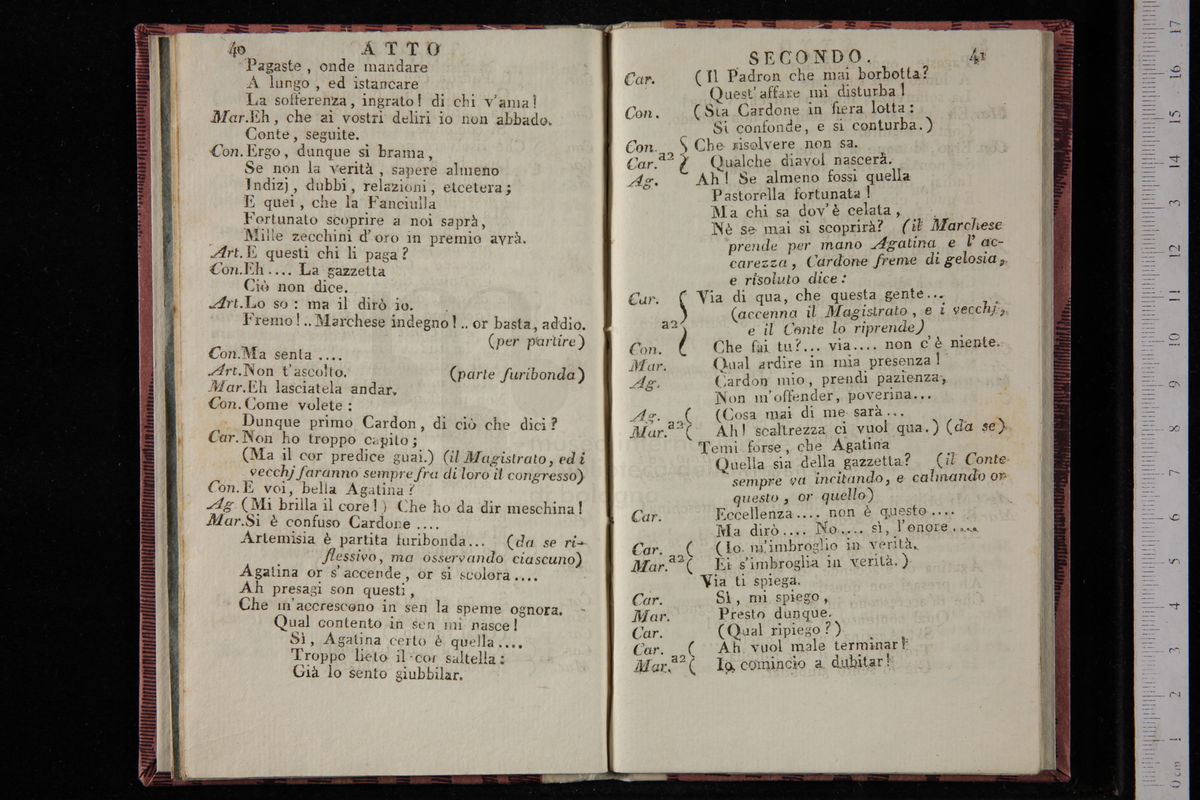 40 ATTO
Pagaste , onde mandare
A lungo , ed istancare
La sofferenza, ingrato! di chi v'ama!
Mar.Eh, che ai vostri deliri io non abbado.
Conte, seguite.
Con.Ergo, dunque si brama,
Se non la verità , sapere almeno
Indizj, dubbi, relazioni, etcetera;
E quei , che la Fanciulla
Fortunato scoprire a noi saprà,
Mille zecchini d'oro in premio avrà.
Art.E questi chi li paga?
Con.Eh.... La gazzetta
Ciò non dice.
Art.Lo so: ma il dirò io.
Fremo!..Marchese indegno!.. or basta, addio.
(per partire)
Con.Ma senta ....
Art.Non t'ascolto. (parte furibonda)
Mar.Eh lasciatela andar.
Con.Come volete:
Dunque primo Cardon, di ciò che dici?
Car.Non ho troppo capito;
(Ma il cor predice guai.) (il Magistrato, ed i
vecchj faranno sempre fra di loro il congresso)
Con.E voi, bella Agatina?
Ag. (Mi brilla il core!) Che ho da dir meschina!
Mar.Si è confuso Cardone ....
Artemisia è partita furibonda... (da se ri-
flessivo, ma osservando ciascuno)
Agatina or s'accende, or si scolora....
Ah presagi son questi,
Che m'accrescono in sen la speme ognora.
Qual contento in sen mi nasce!
Sì, Agatina certo è quella....
Troppo lieto il cor saltella:
Già lo sento giubbilar.
SECONDO. 41
Car. (Il Padron che mai borbotta?
Quest'affare mi disturba!
Con. (Sta Cardone in fiera lotta:
Si confonde, e si conturba.)
Con. a2 { Che risolvere non sa.
Car. Qualche diavol nascerà.
Ag. Ah! Se almeno fossi quella
Pastorella fortunata!
Ma chi sa dov'è celata,
Nè se mai si scoprirà? (il Marchese
prende per mano Agatina e l'ac-
carezza, Cardone freme di gelosia,
e risoluto dice:
Car. { Via di qua, che questa gente...
(accenna il Magistrato, e i vecchj,
a2 e il Conte lo riprende)
Con. Che fai tu?... via.... non c'è niente.
Mar. Qual ardire in mia presenza!
Ag. Cardon mio, prendi pazienza,
Non m'offender, poverina...
Ag. a2 ( (Cosa mai di me sarà...
Mar. ( Ah! scaltrezza ci vuol qua.) (da se)
Temi forse, che Agatina
Quella sia della gazzetta? (il Conte
sempre va incitando, e calmando or
questo, or quello)
Car. Eccellenza.... non è questo....
Ma dirò.... No.... sì, l'onore....
Car. a2 ( (Io m'imbroglio in verità.
Mar. ( Ei s'imbroglia in verità.)
Via ti spiega.
Car. Sì, mi spiego,
Mar. Presto dunque.
Car. (Qual ripiego?)
Car. a2 ( Ah vuol male terminar!
Mar. ( Io comincio a dubitar!
0 cm 1 2 3 4 5 6 7 8 9 10 11 12 13 14 15 16 17